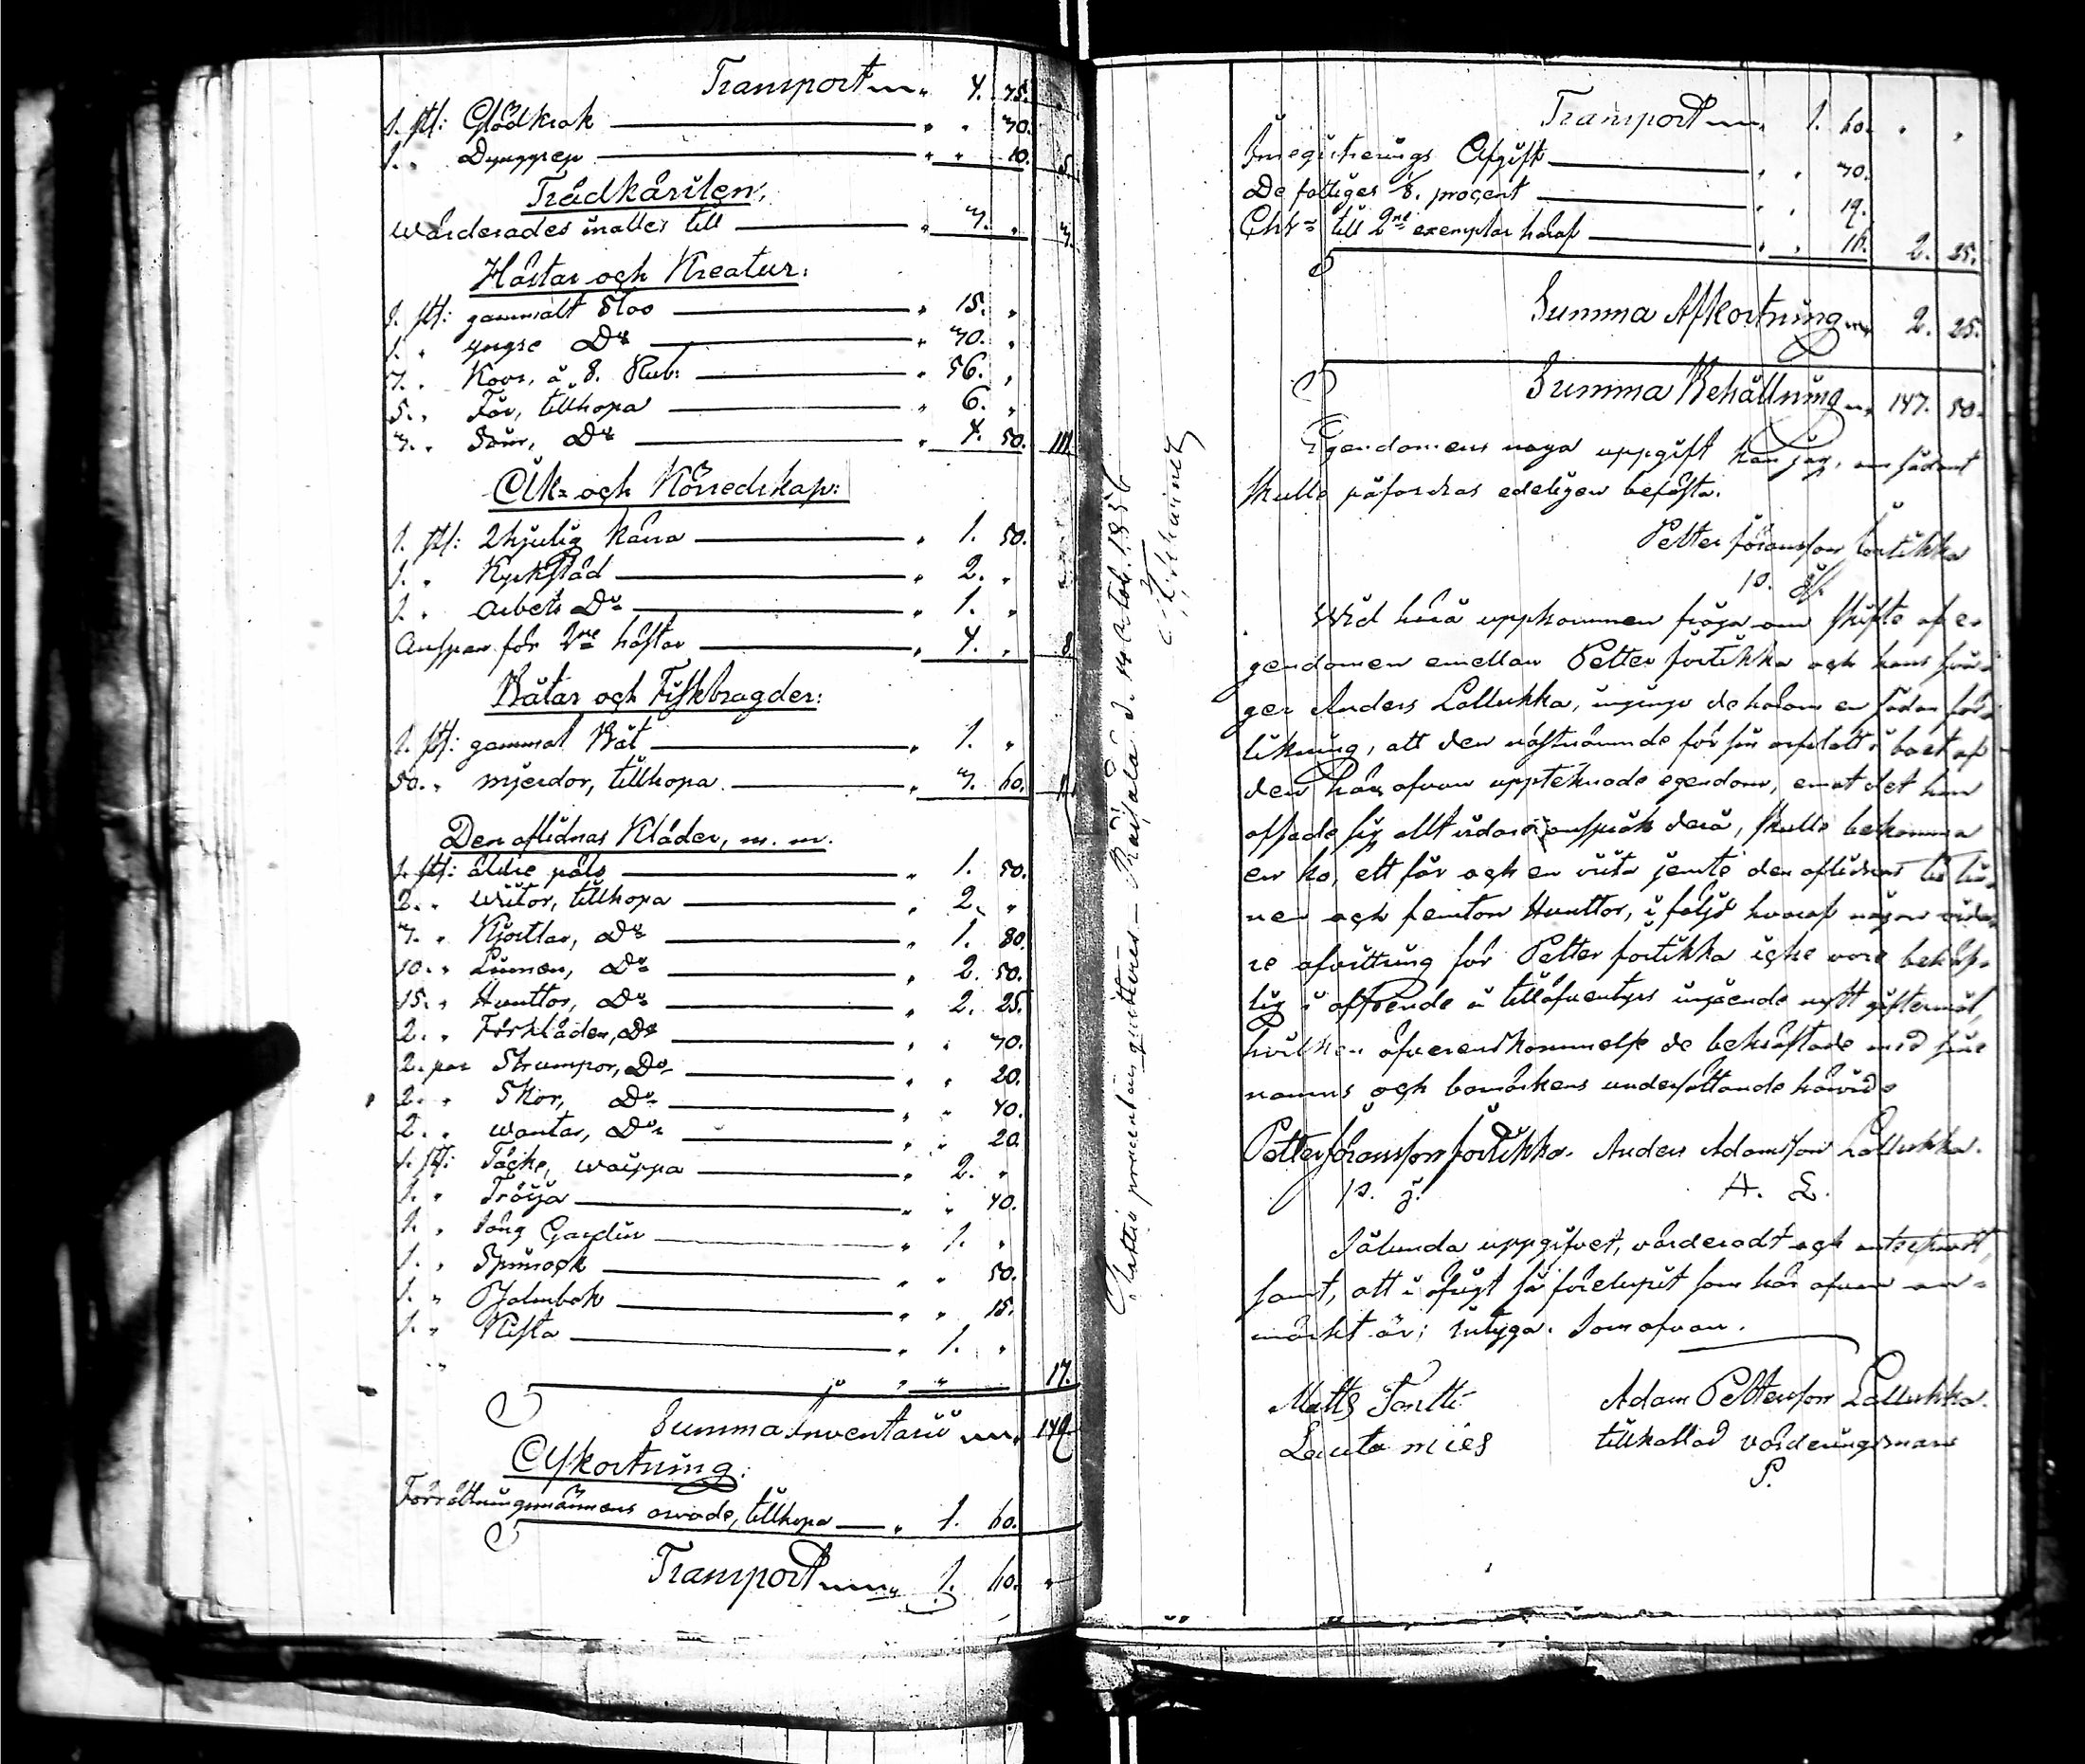 Transport 4. 75.
1. st: Glödkrok " " 30.
1. " Dynggrep " " 10. 5.
Trädkärilen,
wärderades inalles till " 3. " 3.
Hästar och Kreatur:
1. st: gammalt Stoo " 15. "
1. " yngre Do " 30. "
7. " Koor, á 8. Rub: " 56. "
5. " Får, tillhopa " 6. "
3. " Svin, Do " 4. 50. 111.
Åk= och Körredskap:
1. st: 2hjulig Kärra " 1. 50.
1. " Kyrksläd " 2. "
1. " Arbets Do " 1. "
Anspan för 2ne hästar " 4. " 8.
Båtar och Fiskbragder:
1. st: gammal Båt " 1. "
50. " mjerdor, tillhopa " 3. 60.
Den aflidnas Kläder, m. m.
1. st: äldre päls " 1. 50.
2. " tillhopa " 2. "
" Kjortlar, Do " 1. 80.
10. " Linnen, Do " 2. 50.
15. " Hunttor, Do " 2. 25.
2. " Förkläden, Do " " 30.
2. par Strumpor, Do " " 20.
2. " Skor, Do " " 40.
2. " wantar, Do " " 20.
1. st: Täcke, waippa " 2. "
1. " Tröija " " 40.
1. " Säng Gardin " 1. "
1. " Spinrock " " 50.
1. " Psalmbok " " 15.
1. " Kista " 1. "
17.
Summa Inventarii 149.
Afkortning:
Förrättningsmännens arvode, tillhopa " 1. 60.
Transport 1. 60.
Transport 1. 60. " "
Inregistrerings Afgift " " 30.
De fattiges 1/8. procent " " 19.
Chtæ till 2ne exemplar häraf " " 16. 2. 25.
Summa Afkortning 2. 25.
Summa Behållning 147. 50.
Egendomens noga uppgift kan jag, om sådant
skulle påfordras edeligen befästa.
Petter Jöransson
Wid härå uppkommen fråga om skifte af e-
gendomen emellan Petter och hans
ger Anders Lallukka, ingingo de härom en sådan för-
likning, att den nästnämnde för sin arfslott i boet af
den här ofvan uppteknade egendom, emot det han
afsade sig allt vidare anspråk derå, skulle bekomma
en ko, ett får och en kista jemte den aflidnas tio lin-
nen och femton Hunttor, i följd hvaraf någon vida-
re afvittring för Petter icke vore behöf-
lig i afseende å tilläfventyrs ingående nytt giftermål,
hvilken öfverenskommelse de bekräftade med sine
namns och bomärkens undersättande härvid.
Petter Jöransson Anders Adamsson Lallukka.
A. L.
Sålunda uppgifvet, värderadt och antecknadt,
samt, att i öfrigt så förelupit som här ofvan an-
märkt är; intyga. Som ofvan.
Matts Tontti Adam Pettersson Lallukka.
Lautamies tillkallad värderingsman
Chattæ procenten quitteras — Räisälä d. 14 1856